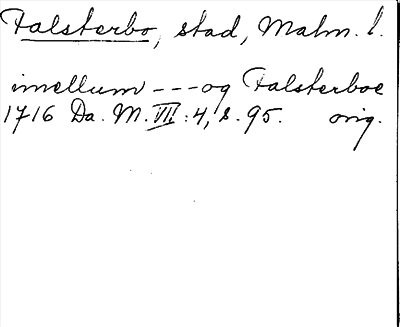 Falsterbo, stad, Malm. l.
imellum --- og Falsterboe
1716 Da. M. VII: 4, s. 95. orig.